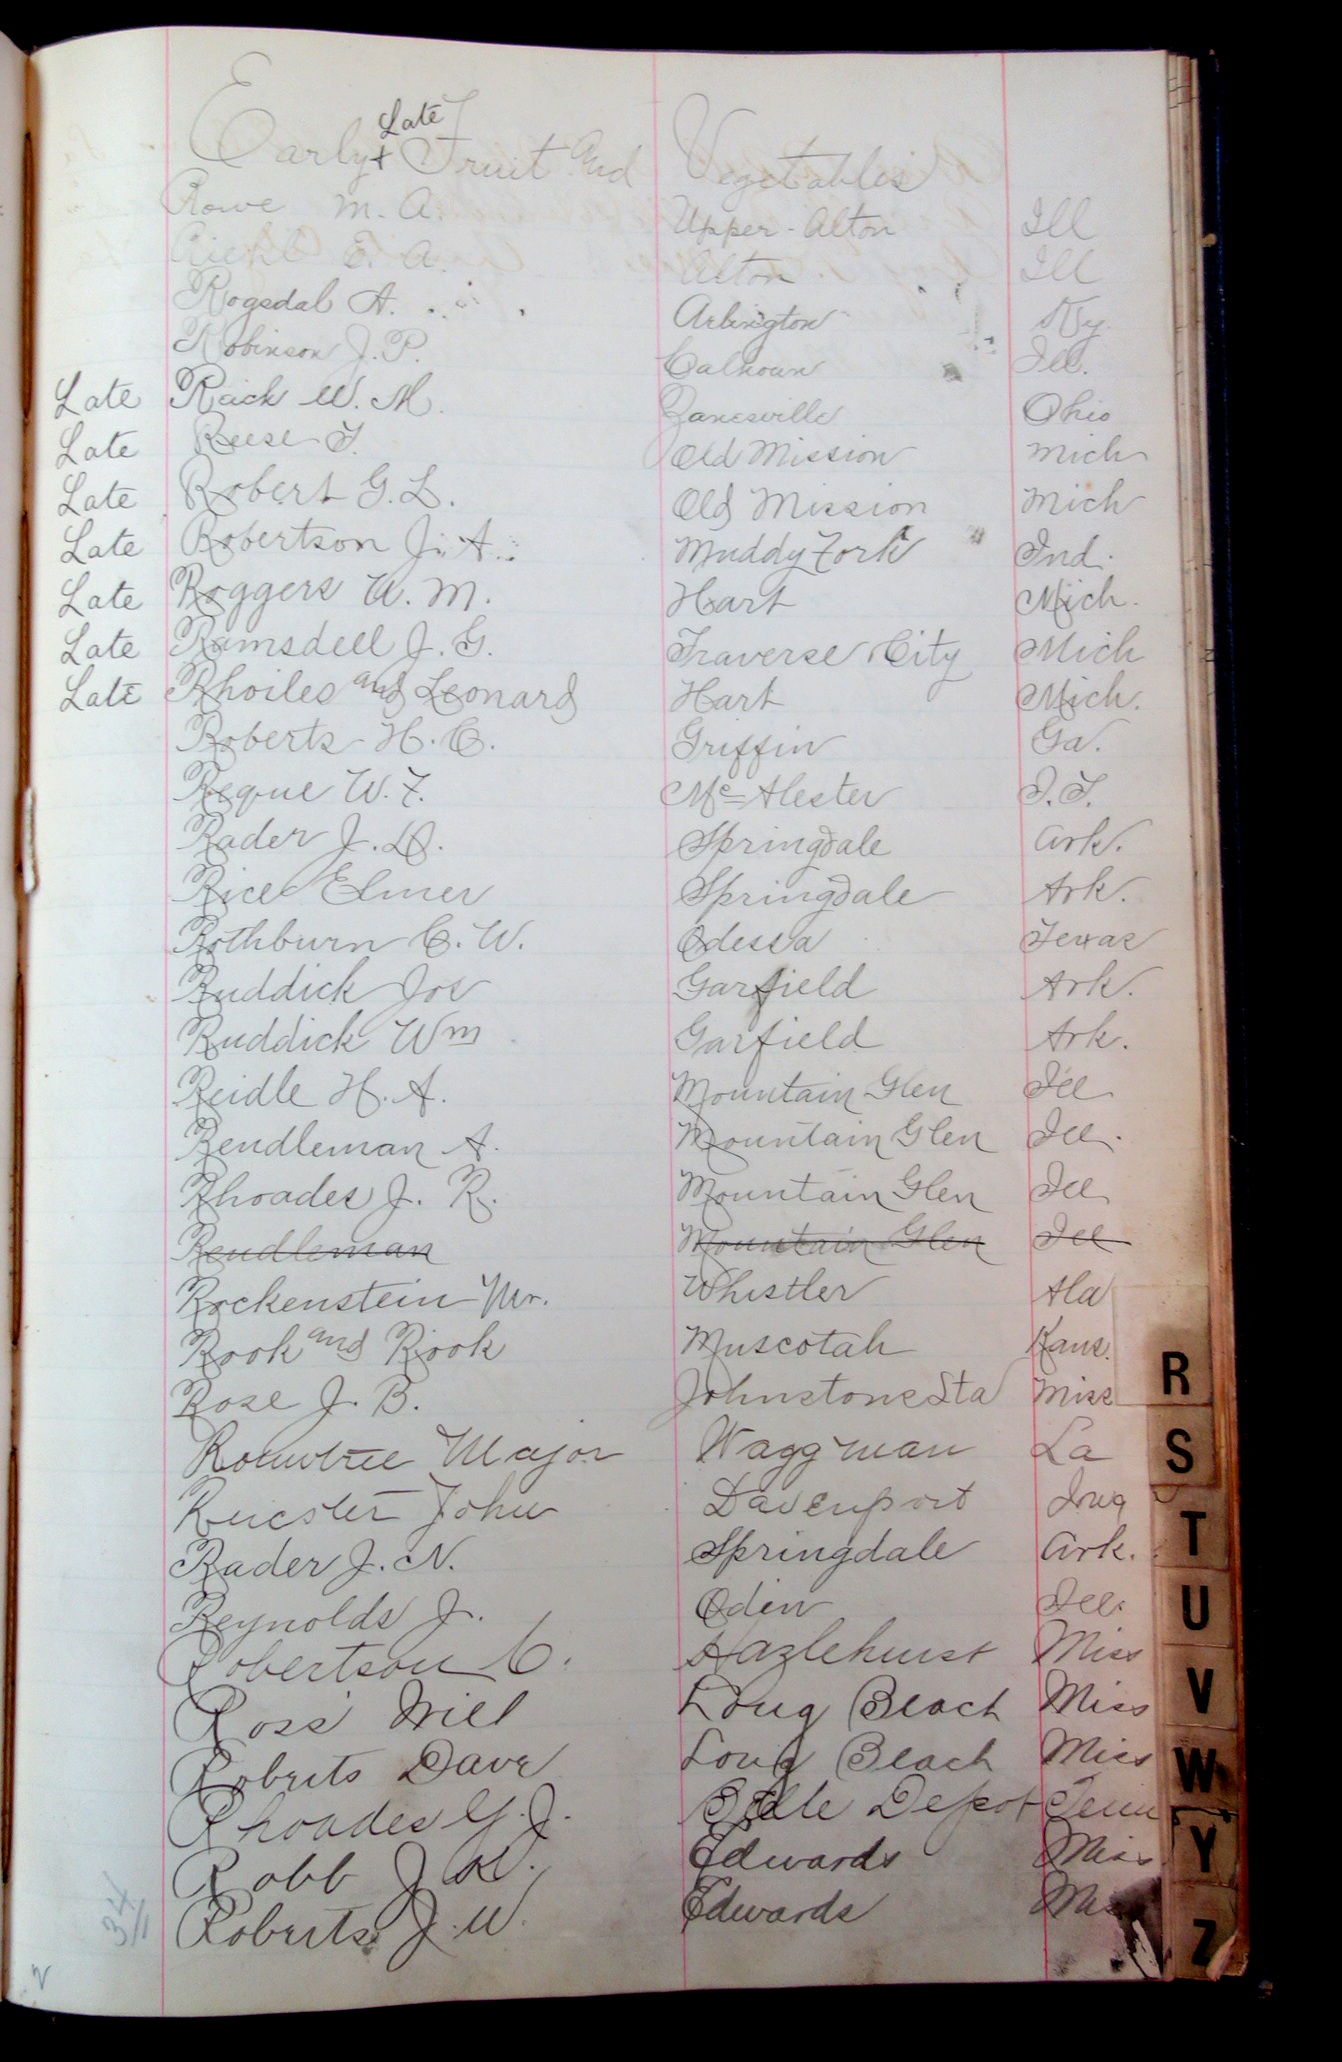 Late
Early + Fruit and Vegetables
Rowe M. A. Upper-Alton Ill
Riehl E. A. Alton Ill
Rogsdal A. Arlington Ky.
Robinson J. P. Calhoun Ill.
Late Raick W. M. Zanesville Ohio
Late Reese T. Old Mission Mich
Late Robert G. L. Old Mission Mich
Late Robertson J. A. Muddy Fork Ind.
Late Roggers W. M. Hart Mich.
Late Ramsdell J. G. Traverse City Mich
Late Rhoiles and Leonard Hart Mich.
Roberts H. C. Griffin Ga.
Reque W. F. Mc=Alester I. T.
Rader J. D. Springdale Ark.
Rice Elmer Springdale Ark.
Rothburn C. W. Odessa Texas
Ruddick Jos Garfield Ark.
Ruddick Wm Garfield Ark.
Reidle H. A. Mountain Glen Ill
Rendleman A. Mountain Glen Ill.
Rhoades J. R. Mountain Glen Ill
Rendleman Mountain Glen Ill
Rockenstein Mr. Whistler Ala
Rook and Rook Muscotah Kans.
Rose J. B. Johnstons Sta Miss
Rowntree Major Waggman La
Ruester John Davenport Iowa
Rader J. N. Springdale Ark.
Reynolds J. Odin Ill.
Robertson C. Hazlehurst Miss
Ross Will Long Beach Miss
Roberts Dave Long Beach Miss
Rhoades G. J. Depot Tenn
Robb J. Edwards Miss
Roberts J. W. Edwards
R
S
T
U
V
W
Y
Z